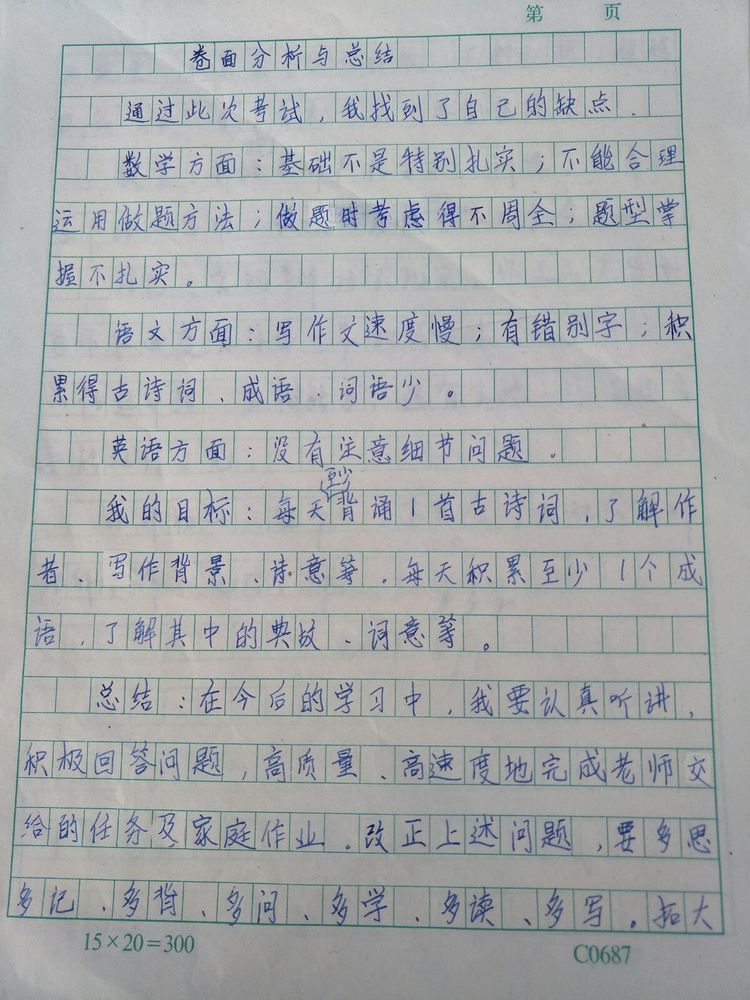 第 页
卷面分析与总结
通过此次考试,我找到了自己的缺点.
数学方面:基础不是特别扎实;不能合理
运用做题方法;做题时考虑得不周全;题型掌
握不扎实。
语文方面:写作文速度慢;有错别字;积
累得古诗词、成语、词语少。
英语方面:没有注意细节问题。
至少
我的目标:每天背诵1首古诗词,了解作
者、写作背景、诗意等.每天积累至少1个成
语,了解其中的典故、词意等。
总结:在今后的学习中,我要认真听讲,
积极回答问题,高质量、高速度地完成老师交
给的任务及家庭作业.改正上述问题,要多思
多记、多背、多问、多学、多读、多写。拓大
15×20=300
C0687